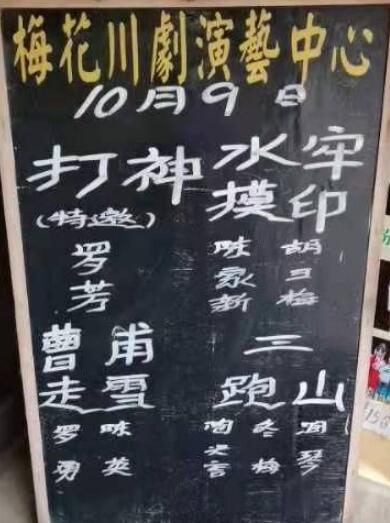 梅花川劇演藝中心
10月9日
打神
(特邀)
罗芳
水牢
摸印
陈家新
胡梅
曹甫
走雪
罗勇
陈英
三
跑山
陶言
冬梅
周琴